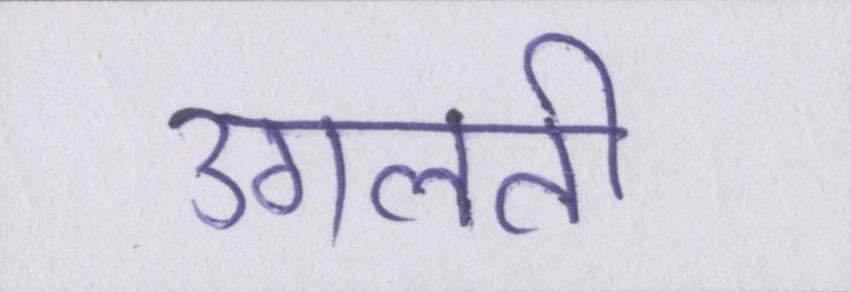 उगलती